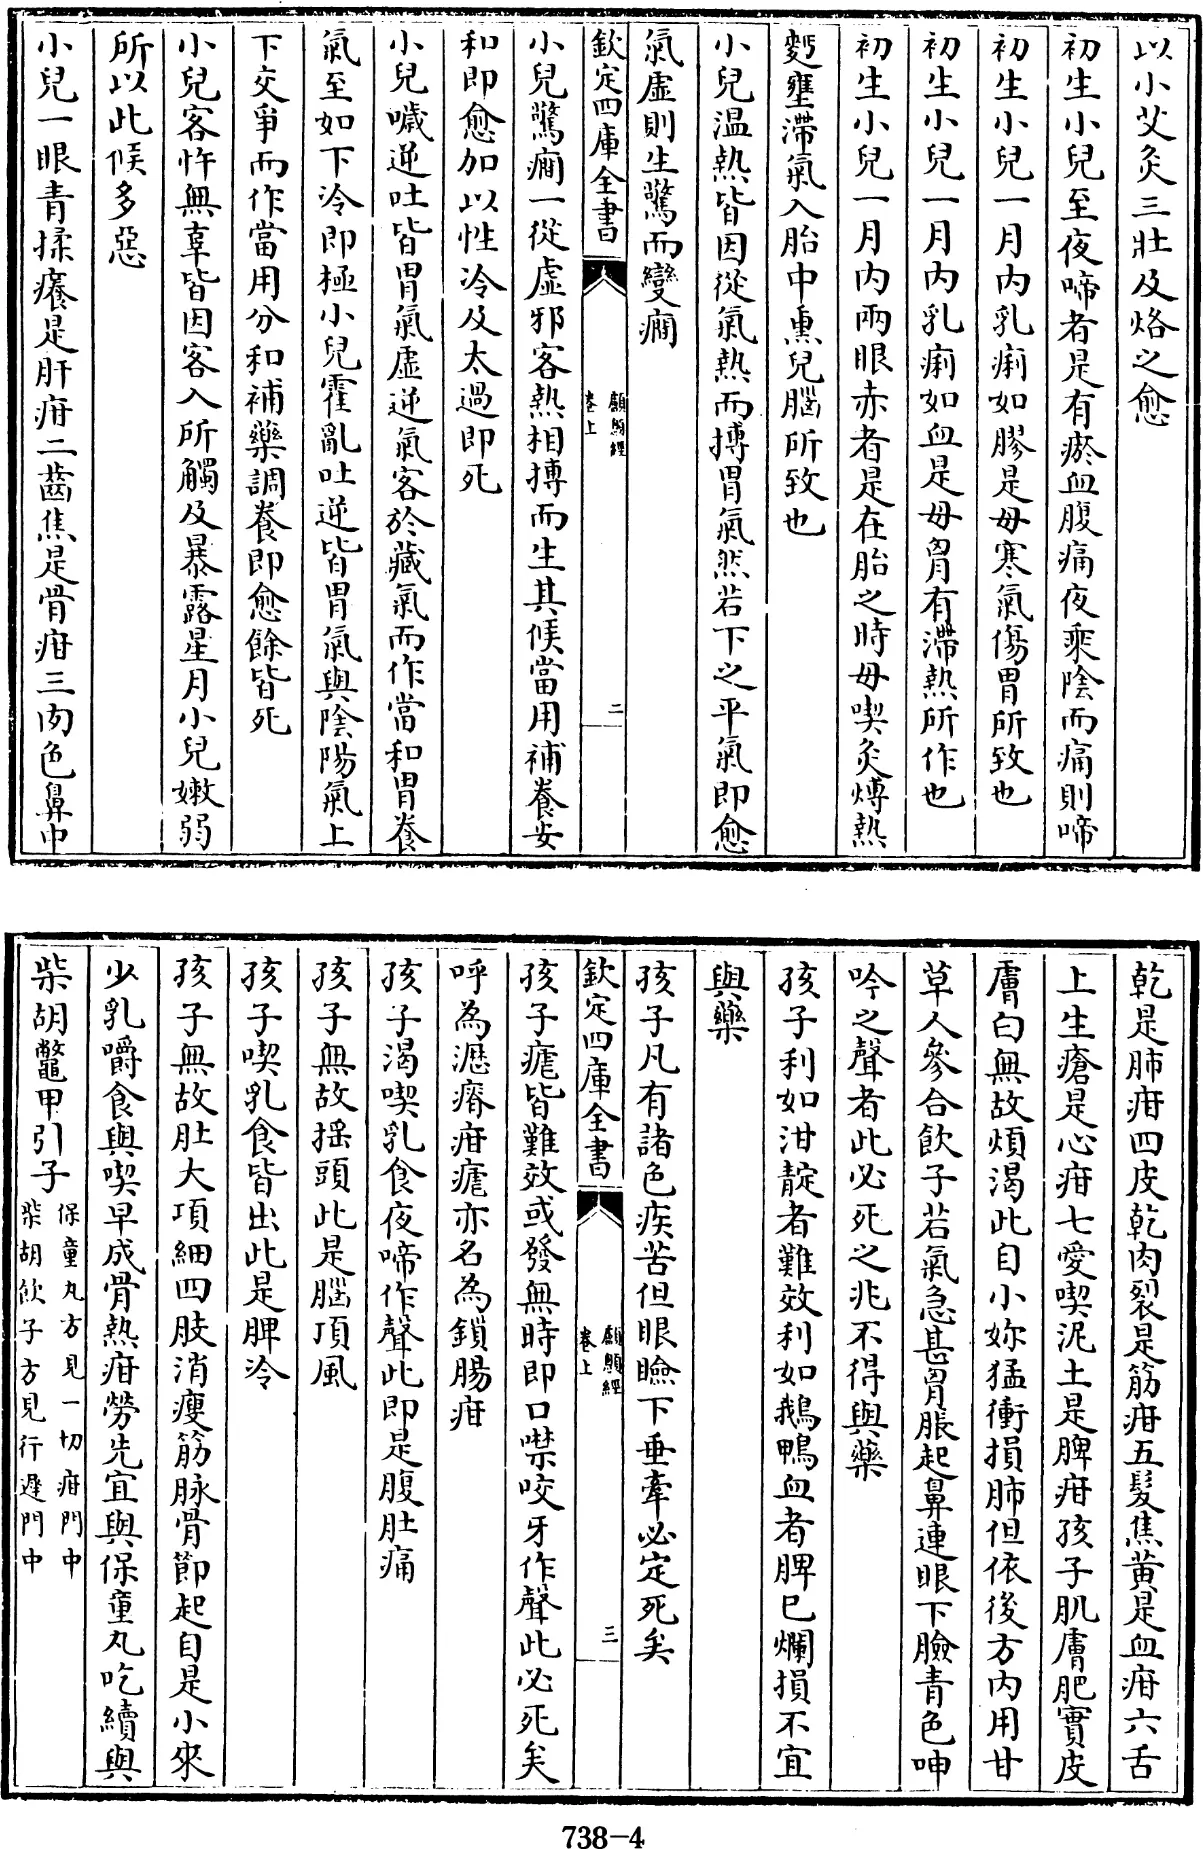 以小艾灸三壯及烙之愈
初生小兒至夜啼者是有瘀血腹痛夜乘陰而痛則啼
初生小兒一月内乳痢如膠是母寒氣傷胃所致也
初生小兒一月内乳痢如血是母胷有滯熱所作也
初生小兒一月内兩眼赤者是在胎之時母喫炙煿熱
麫壅滯氣入胎中熏兒腦所致也
小兒温熱皆因從氣熱而搏胃氣然若下之平氣即愈
氣虚則生驚而變癇
欽定四庫全書
顱顖經
卷上
二
小兒驚癇一從虚邪客熱相搏而生其候當用補養安
和即愈加以性冷及太過即死
小兒噦逆吐皆胃氣虚逆氣客於藏氣而作當和胃養
氣至如下冷即極小兒霍亂吐逆皆胃氣與陰陽氣上
下交爭而作當用分和補藥調養即愈餘皆死
小兒客忤無辜皆因客入所觸及暴露星月小兒嫩弱
所以此候多惡
小兒一眼青揉癢是肝疳二齒焦是骨疳三肉色鼻中
乾是肺疳四皮乾肉裂是筋疳五髮焦黄是血疳六舌
上生瘡是心疳七愛喫泥土是脾疳孩子肌膚肥實皮
膚白無故煩渴此自小妳猛衝損肺但依後方内用甘
草人參合飲子若氣急甚胷脹起鼻連眼下臉青色呻
吟之聲者此必死之兆不得與藥
孩子利如泔靛者難效利如鵝鴨血者脾已爛損不宜
與藥
孩子凡有諸色疾苦但眼瞼下垂牽必定死矣
欽定四庫全書
顱顖經
卷上
三
孩子瘧皆難效或發無時即口噤咬牙作聲此必死矣
呼為瀝瘠疳瘧亦名為鎖腸疳
孩子渴喫乳食夜啼作聲此即是腹肚痛
孩子無故揺頭此是腦頂風
孩子喫乳食皆出此是脾冷
孩子無故肚大項細四肢消瘦筋脉骨節起自是小來
少乳嚼食與喫早成骨熱疳勞先宜與保童丸吃續與
柴胡鼈甲引子
保童丸方見一切疳門中
柴胡飲子方見行遲門中
738-4